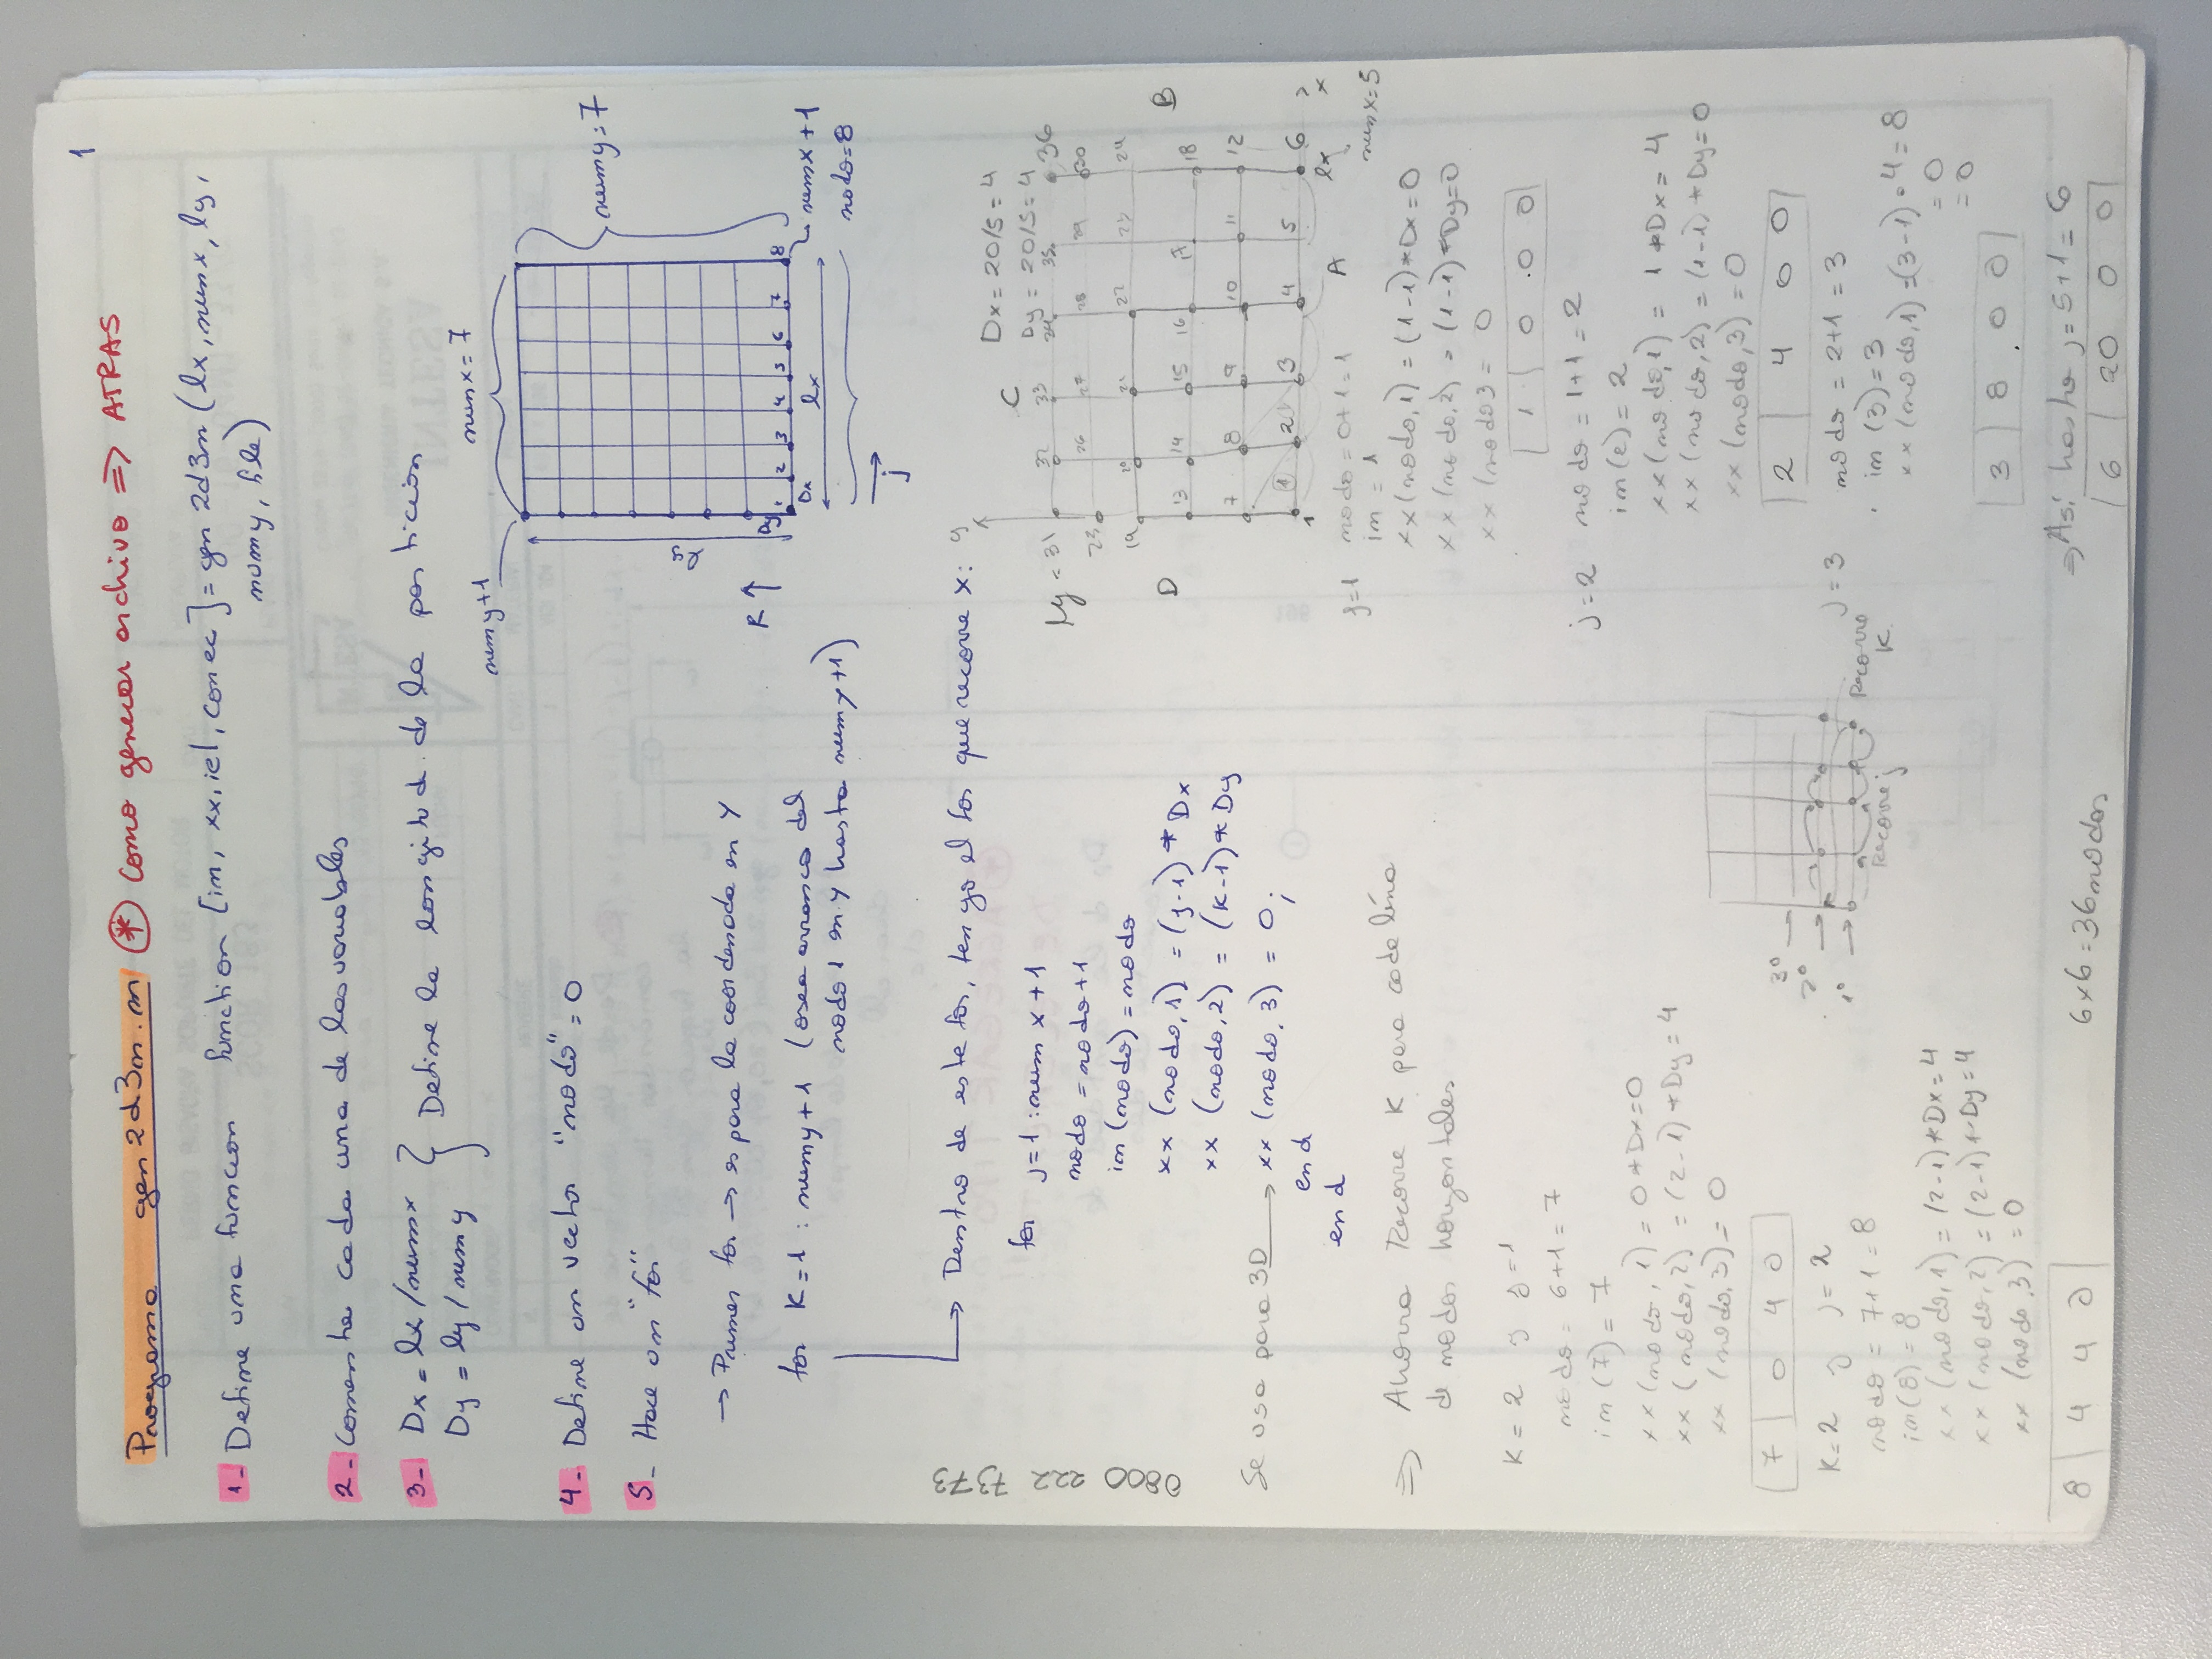 1
Programa gen2d3n.m * Como generar archivo ⇒ ATRAS
1- Define una funcion function [in, xx, iel, conec] = gen2d3n (lx, numx, ly,
numy, file)
2- Comenta cada una de las variables
3- Dx = lx/numx
Dy = ly/numy
} Define la longitud de la particion
numx = 7
numy+1
numy = 7
ly
K ↑
Dy
1 2 3 4 5 6 7 8
Dx
lx
numx + 1
nodo = 8
j
4- Define un vector "nodo" = 0
5- Hace un "for"
→ Primer for → es para la coordenada en Y
for K=1 : numy+1 (osea arranca del
nodo 1 en Y hasta numy+1)
→ Dentro de este for, tengo el for que recorre x:
for j=1 : num x + 1
nodo = nodo+1
in (nodo) = nodo
xx (nodo,1) = (j-1) * Dx
xx (nodo,2) = (K-1) * Dy
Se usa para 3D → xx (nodo,3) = 0;
end
end
0800 222 7373
⇒ Ahora Recorre K para cada lína
de nodos horizontales
K = 2 y j=1
nodo = 6+1 = 7
in (7) = 7
xx (nodo, 1) = 0*Dx=0
xx (nodo,2) = (2-1)*Dy = 4
xx (nodo,3) = 0
7 | 0 4 0
K=2 y j=2
nodo = 7+1 = 8
in(8) = 8
xx (nodo,1) = (2-1)*Dx=4
xx (nodo,2) = (2-1)*Dy=4
xx (nodo,3) = 0
8 | 4 4 0
3°
2°
1°
Recorre j
Recorre
K
6x6 = 36 nodos
y
Dx = 20/5 = 4
Dy = 20/5 = 4
C
ly = 31 32 33 34 35 36
25 26 27 28 29 30
19 20 21 22 23 24
D
B
13 14 15 16 17 18
7 8 9 10 11 12
1 ① 2 3 4 5 6
x
A
lx
numx=5
j=1 nodo = 0+1 = 1
in = 1
xx(nodo,1) = (1-1)*Dx=0
xx (nodo,2) = (1-1)*Dy=0
xx (nodo3 = 0
1 | 0 0 0
j=2 nodo = 1+1 = 2
in(2) = 2
xx(nodo,1) = 1*Dx= 4
xx (nodo,2) = (1-1)*Dy=0
xx (nodo,3) = 0
2 | 4 0 0
j = 3 nodo = 2+1 = 3
in (3) = 3
xx (nodo,1) = (3-1)·4 = 8
= 0
= 0
3 | 8 0 0
⇒ Así hasta j=5+1=6
6 | 20 0 0